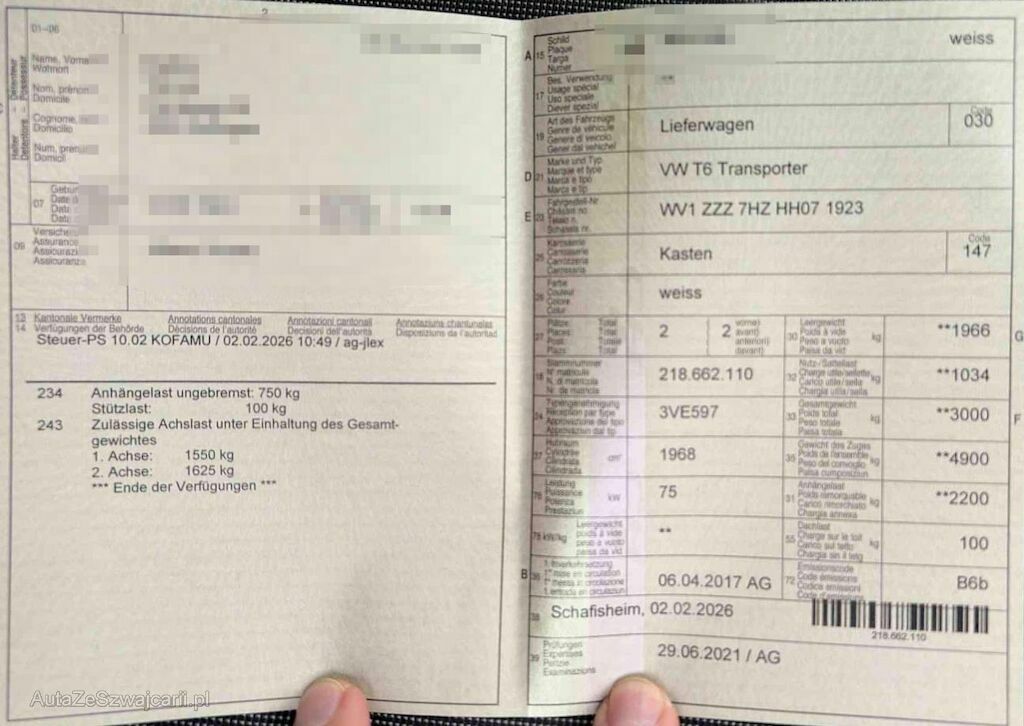 2
01-06
Name, Vorna
Wohnort
Nom, prénon
Domicile
Cognome,
Domicilio
Num, pren
Domicil
Halter - Détenteur
Detentore - Possessur
07
Gebur
Date d
Data
Data
09
Versiche
Assurance
Assicurazi
Assicuranze
13 Kantonale Vermerke Annotations cantonales Annotazioni cantonali Annotaziuns chantunalas
14 Verfügungen der Behörde Décisions de l'autorité Decisioni dell'autorità Disposiziuns da l'autoritad
Steuer-PS 10.02 KOFAMU / 02.02.2026 10:49 / ag-jlex
234 Anhängelast ungebremst: 750 kg
Stützlast: 100 kg
243 Zulässige Achslast unter Einhaltung des Gesamt-
gewichtes
1. Achse: 1550 kg
2. Achse: 1625 kg
*** Ende der Verfügungen ***
A 15 Schild
Plaque
Targa
Numer
weiss
17 Bes. Verwendung
Usage spécial
Uso speciale
Diever spezial
**
19 Art des Fahrzeugs
Genre de véhicule
Genere di veicolo
Gener dal vehichel
Lieferwagen
Code
030
D 21 Marke und Typ
Marque et type
Marca e tipo
Marca e tip
VW T6 Transporter
E 23 Fahrgestell-Nr
Châssis no
Telaio n.
Schassis nr.
WV1 ZZZ 7HZ HH07 1923
25 Karosserie
Carrosserie
Carrozzeria
Carossaria
Kasten
Code
147
26 Farbe
Couleur
Colore
Colur
weiss
27 Plätze Total
Places Total
Posti Totale
Plazs Total
2
2 vorne)
avant)
anteriori)
davant)
30 Leergewicht
Poids à vide
Peso a vuoto
Paisa da vid
kg
**1966
G
18 Stammnummer
N° matricule
N. di matricola
Nr. da matricla
218.662.110
32 Nutz-/Sattellast
Charge utile/sellette
Carico utile/sella
Chargia utila/sella
kg
**1034
24 Typengenehmigung
Réception par type
Approvazione del tipo
Approvaziun dal tip
3VE597
33 Gesamtgewicht
Poids total
Peso totale
Paisa totala
kg
**3000
F
37 Hubraum
Cylindrée
Cilindrata
Cilindrada
cm³
1968
35 Gewicht des Zuges
Poids de l'ensemble
Peso del convoglio
Paisa cumposiziun
kg
**4900
76 Leistung
Puissance
Potenza
Prestaziun
kW
75
31 Anhängelast
Poids remorquable
Carico rimorchiato
Chargia annexa
kg
**2200
78 kW/kg
Leergewicht
poids à vide
peso a vuoto
paisa da vid
**
55 Dachlast
Charge sur le toit
Carico sul tetto
Chargia sin il tetg
kg
100
B 36 1. Inverkehrsetzung
1re mise en circulation
1a messa in circolazione
1. entrada en circulaziun
06.04.2017 AG
72 Emissionscode
Code émissions
Codice emissioni
Code d'emissiuns
B6b
38 Schafisheim, 02.02.2026
218.662.110
39 Prüfungen
Expertises
Perizie
Examinaziuns
29.06.2021 / AG
AutaZeSzwajcarii.pl